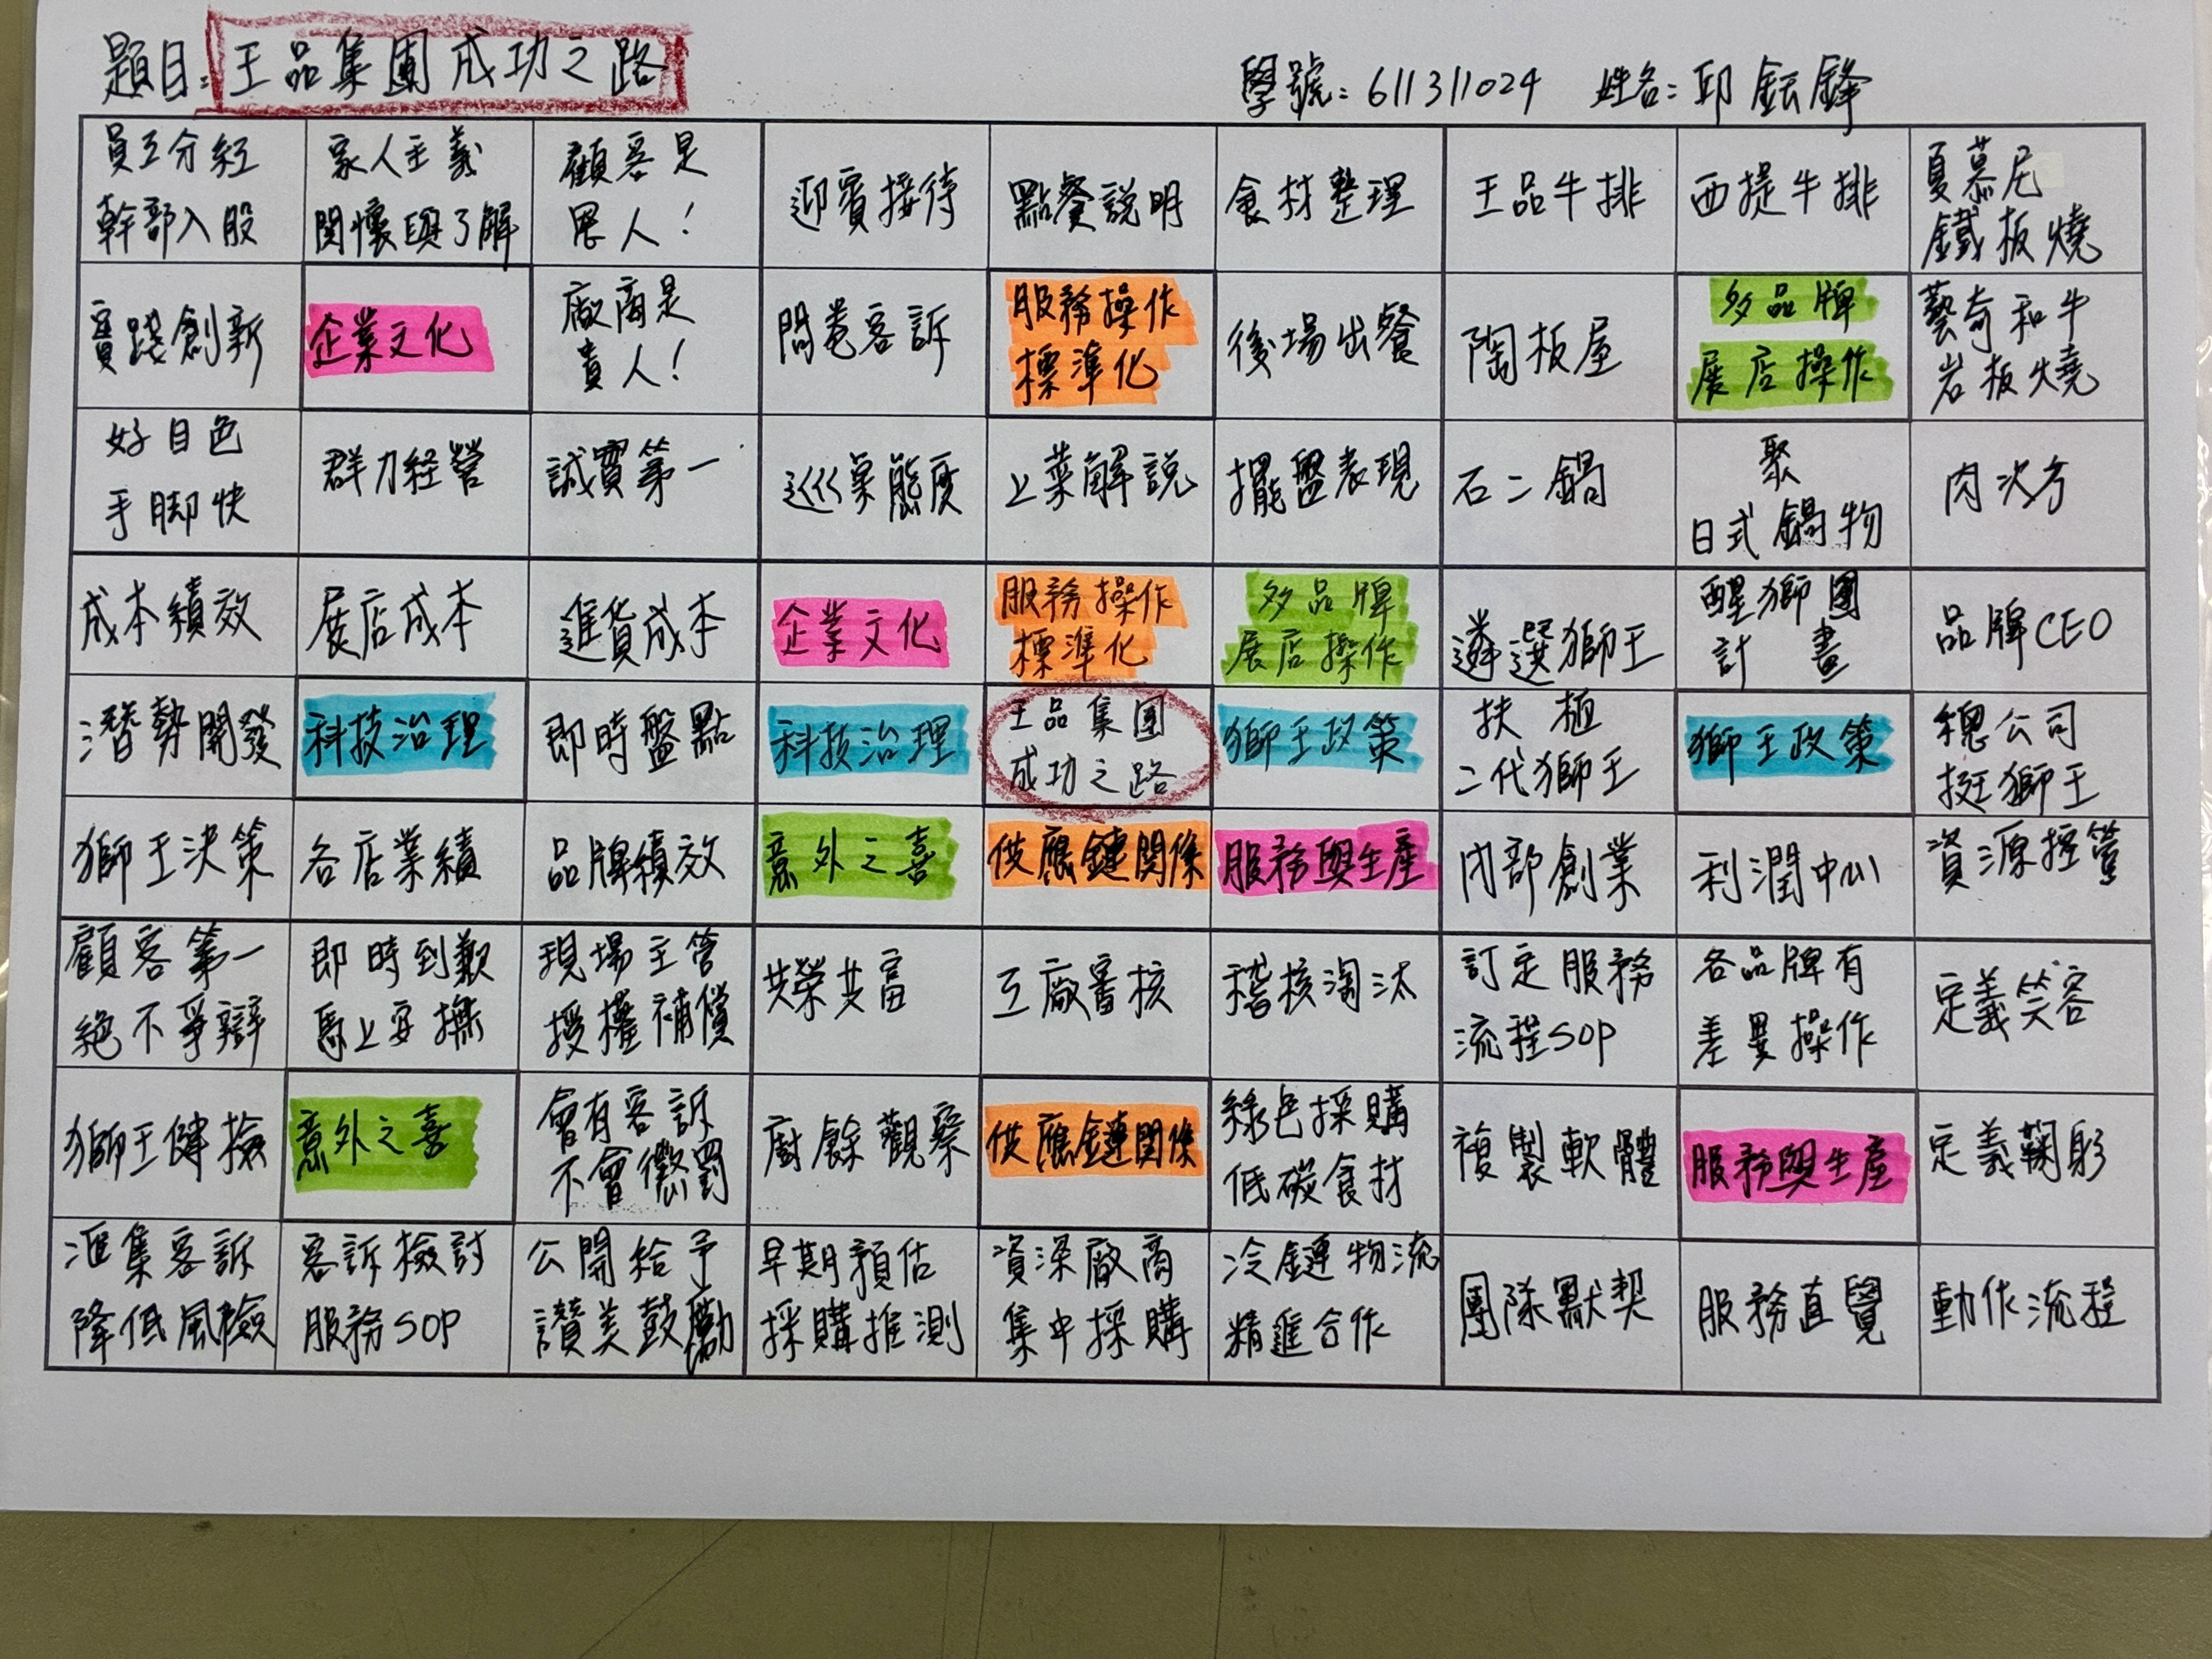 題目：王品集團成功之路
學號：611311024 姓名：邱鈺鋒
員工分紅
幹部入股
家人主義
關懷與了解
顧客是
恩人！
迎賓接待
點餐說明
食材整理
王品牛排
西提牛排
夏慕尼
鐵板燒
實踐創新
企業文化
廠商是
貴人！
問卷客訴
服務操作
標準化
後場出餐
陶板屋
多品牌
展店操作
藝奇和牛
岩板燒
好目色
手腳快
群力經營
誠實第一
巡桌態度
上菜解說
擺盤表現
石二鍋
聚
日式鍋物
肉次方
成本績效
展店成本
進貨成本
企業文化
服務操作
標準化
多品牌
展店操作
遴選獅王
醒獅團
計畫
品牌CEO
潛勢開發
科技治理
即時盤點
科技治理
王品集團
成功之路
獅王政策
扶植
二代獅王
獅王政策
總公司
挺獅王
獅王決策
各店業績
品牌績效
意外之喜
供應鏈關係
服務與生產
內部創業
利潤中心
資源控管
顧客第一
絕不爭辯
即時到歉
馬上安撫
現場主管
授權補償
共榮共富
工廠審核
稽核淘汰
訂定服務
流程SOP
各品牌有
差異操作
定義笑容
獅王健檢
意外之喜
會有客訴
不會懲罰
廚餘觀察
供應鏈關係
綠色採購
低碳食材
複製軟體
服務與生產
定義鞠躬
匯集客訴
降低風險
客訴檢討
服務SOP
公開給予
讚美鼓勵
早期預估
採購推測
資深廠商
集中採購
冷鏈物流
精進合作
團隊默契
服務直覺
動作流程